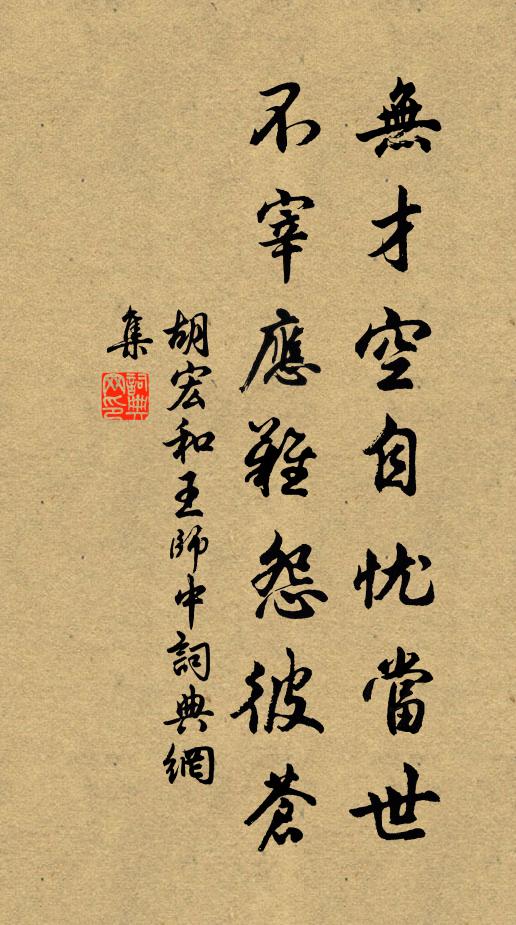 無才空自忧當世
不宰應難怨彼蒼
胡宏和王師中詞典網
集
詞典網印